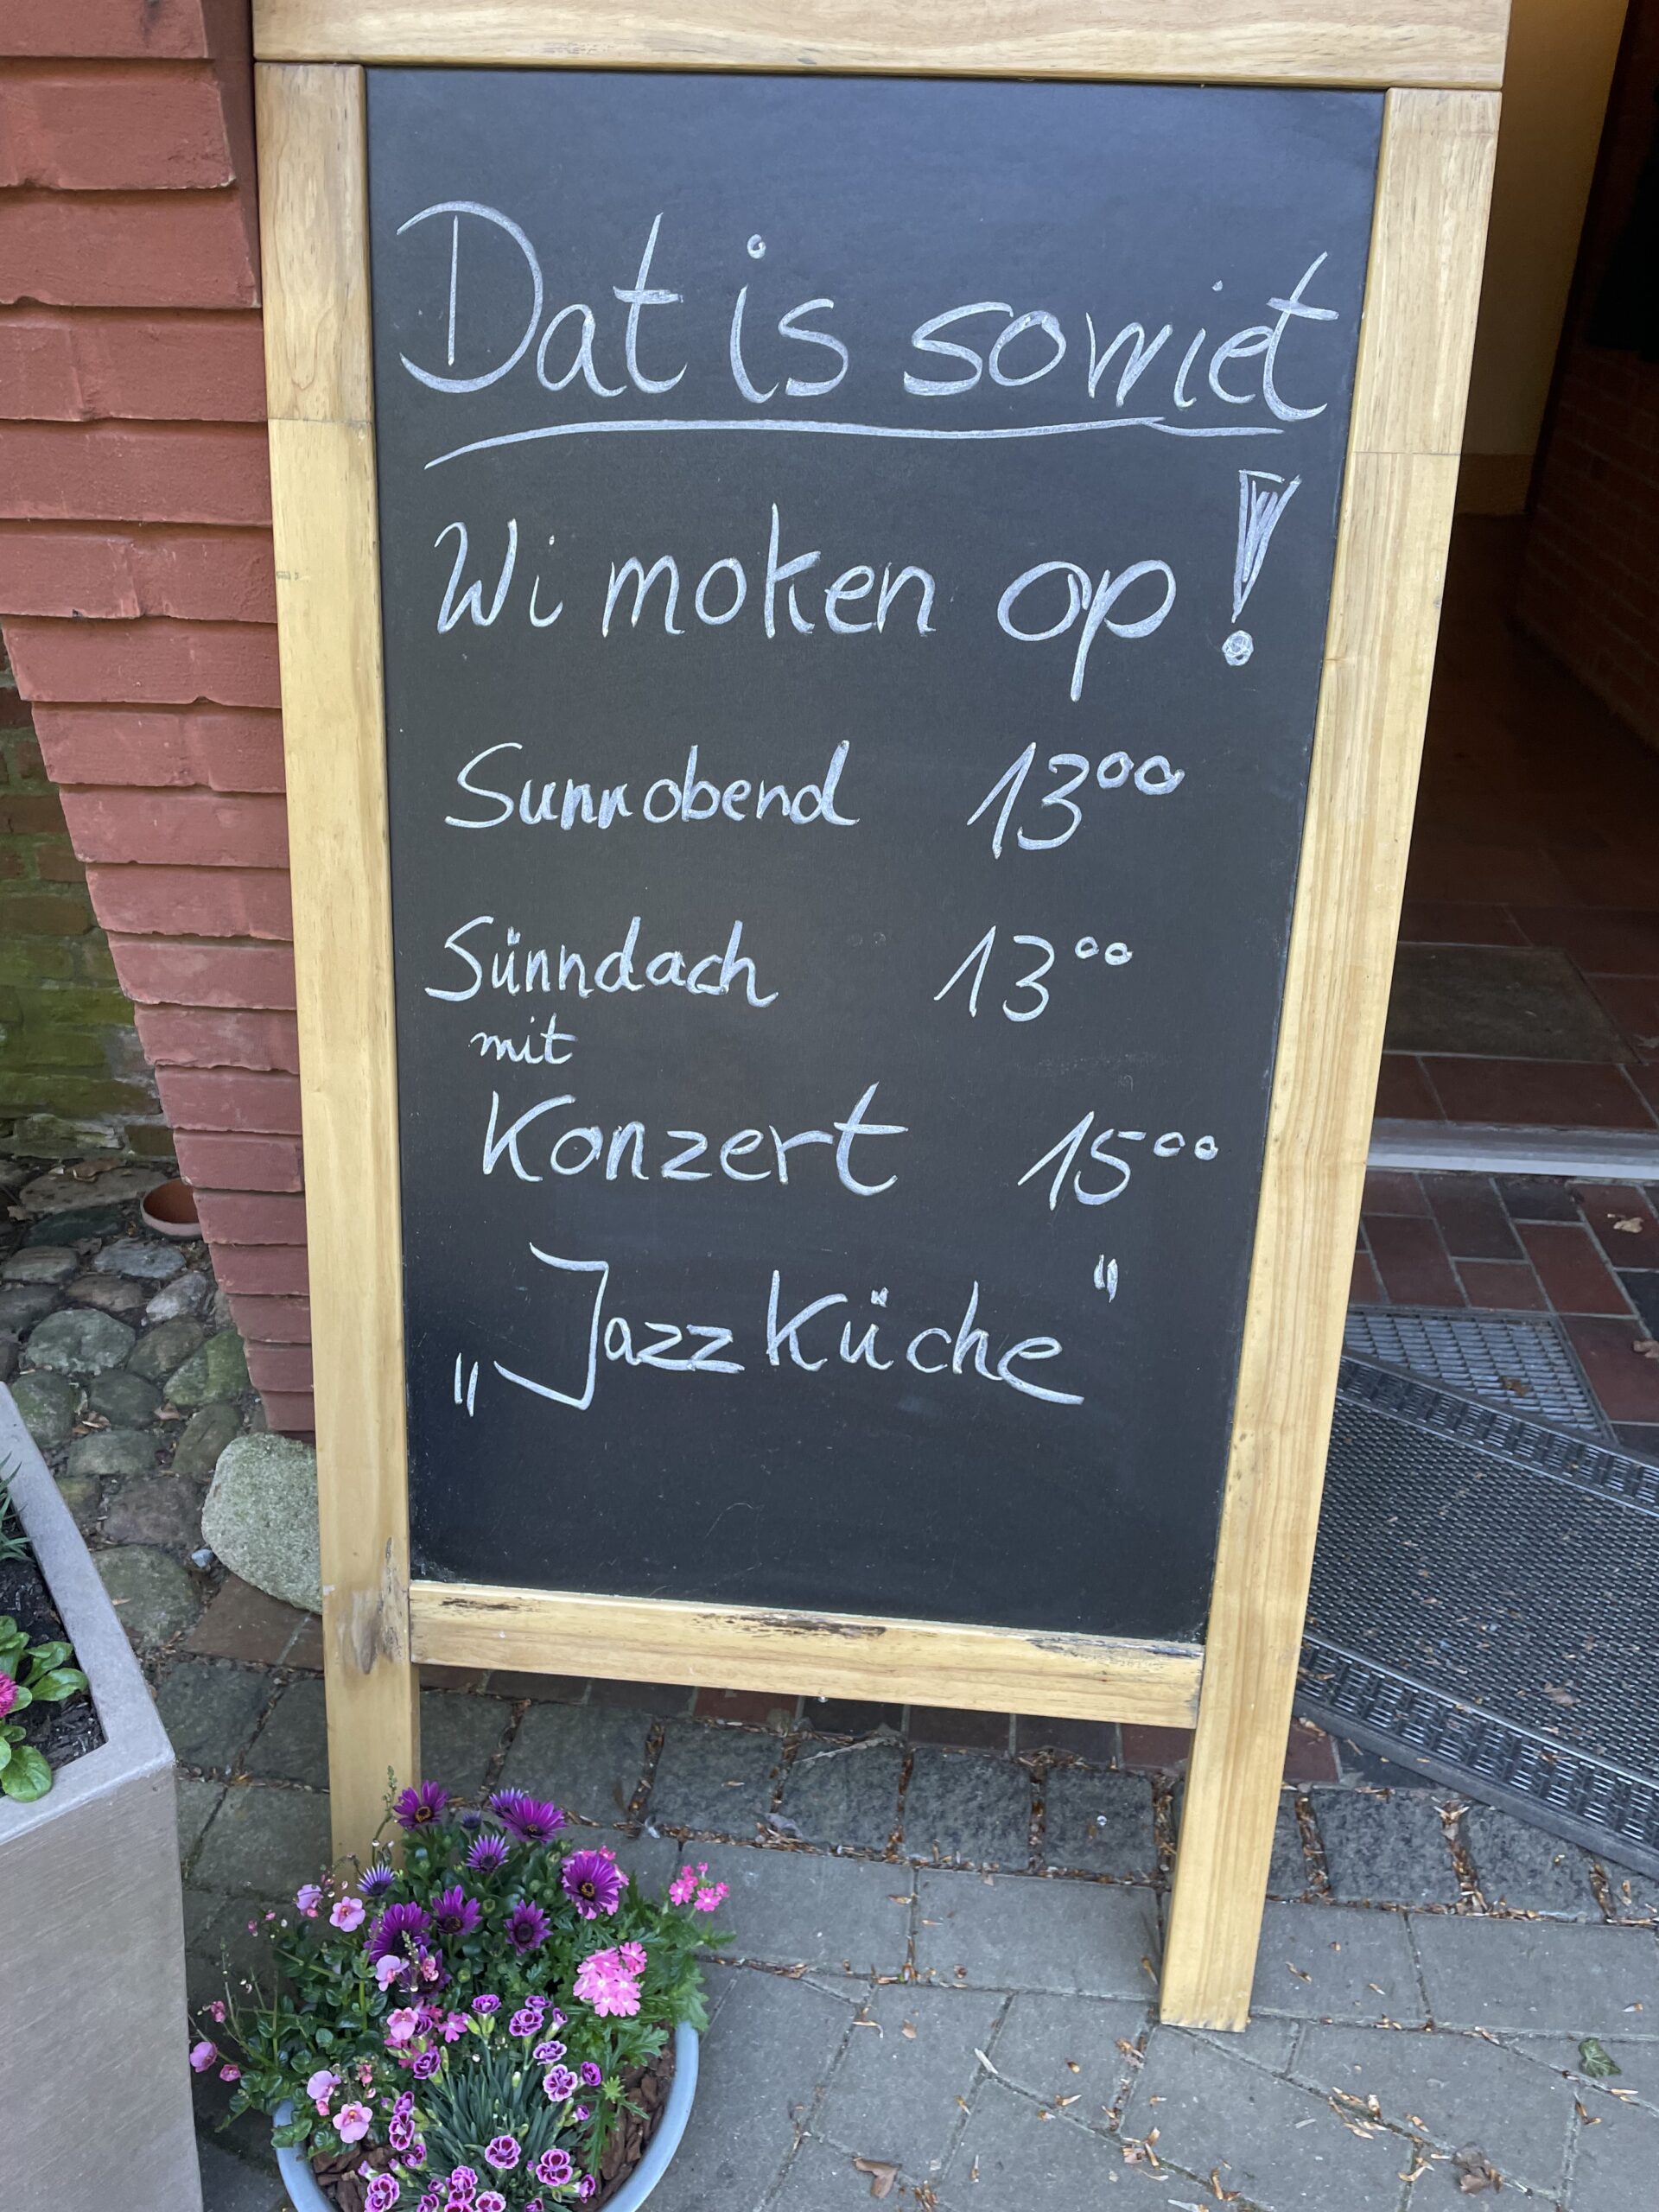 Dat is sowiet
Wi moken op!
Sunnobend 13⁰⁰
Sünndach 13⁰⁰
mit
Konzert 15⁰⁰
„Jazz Küche"